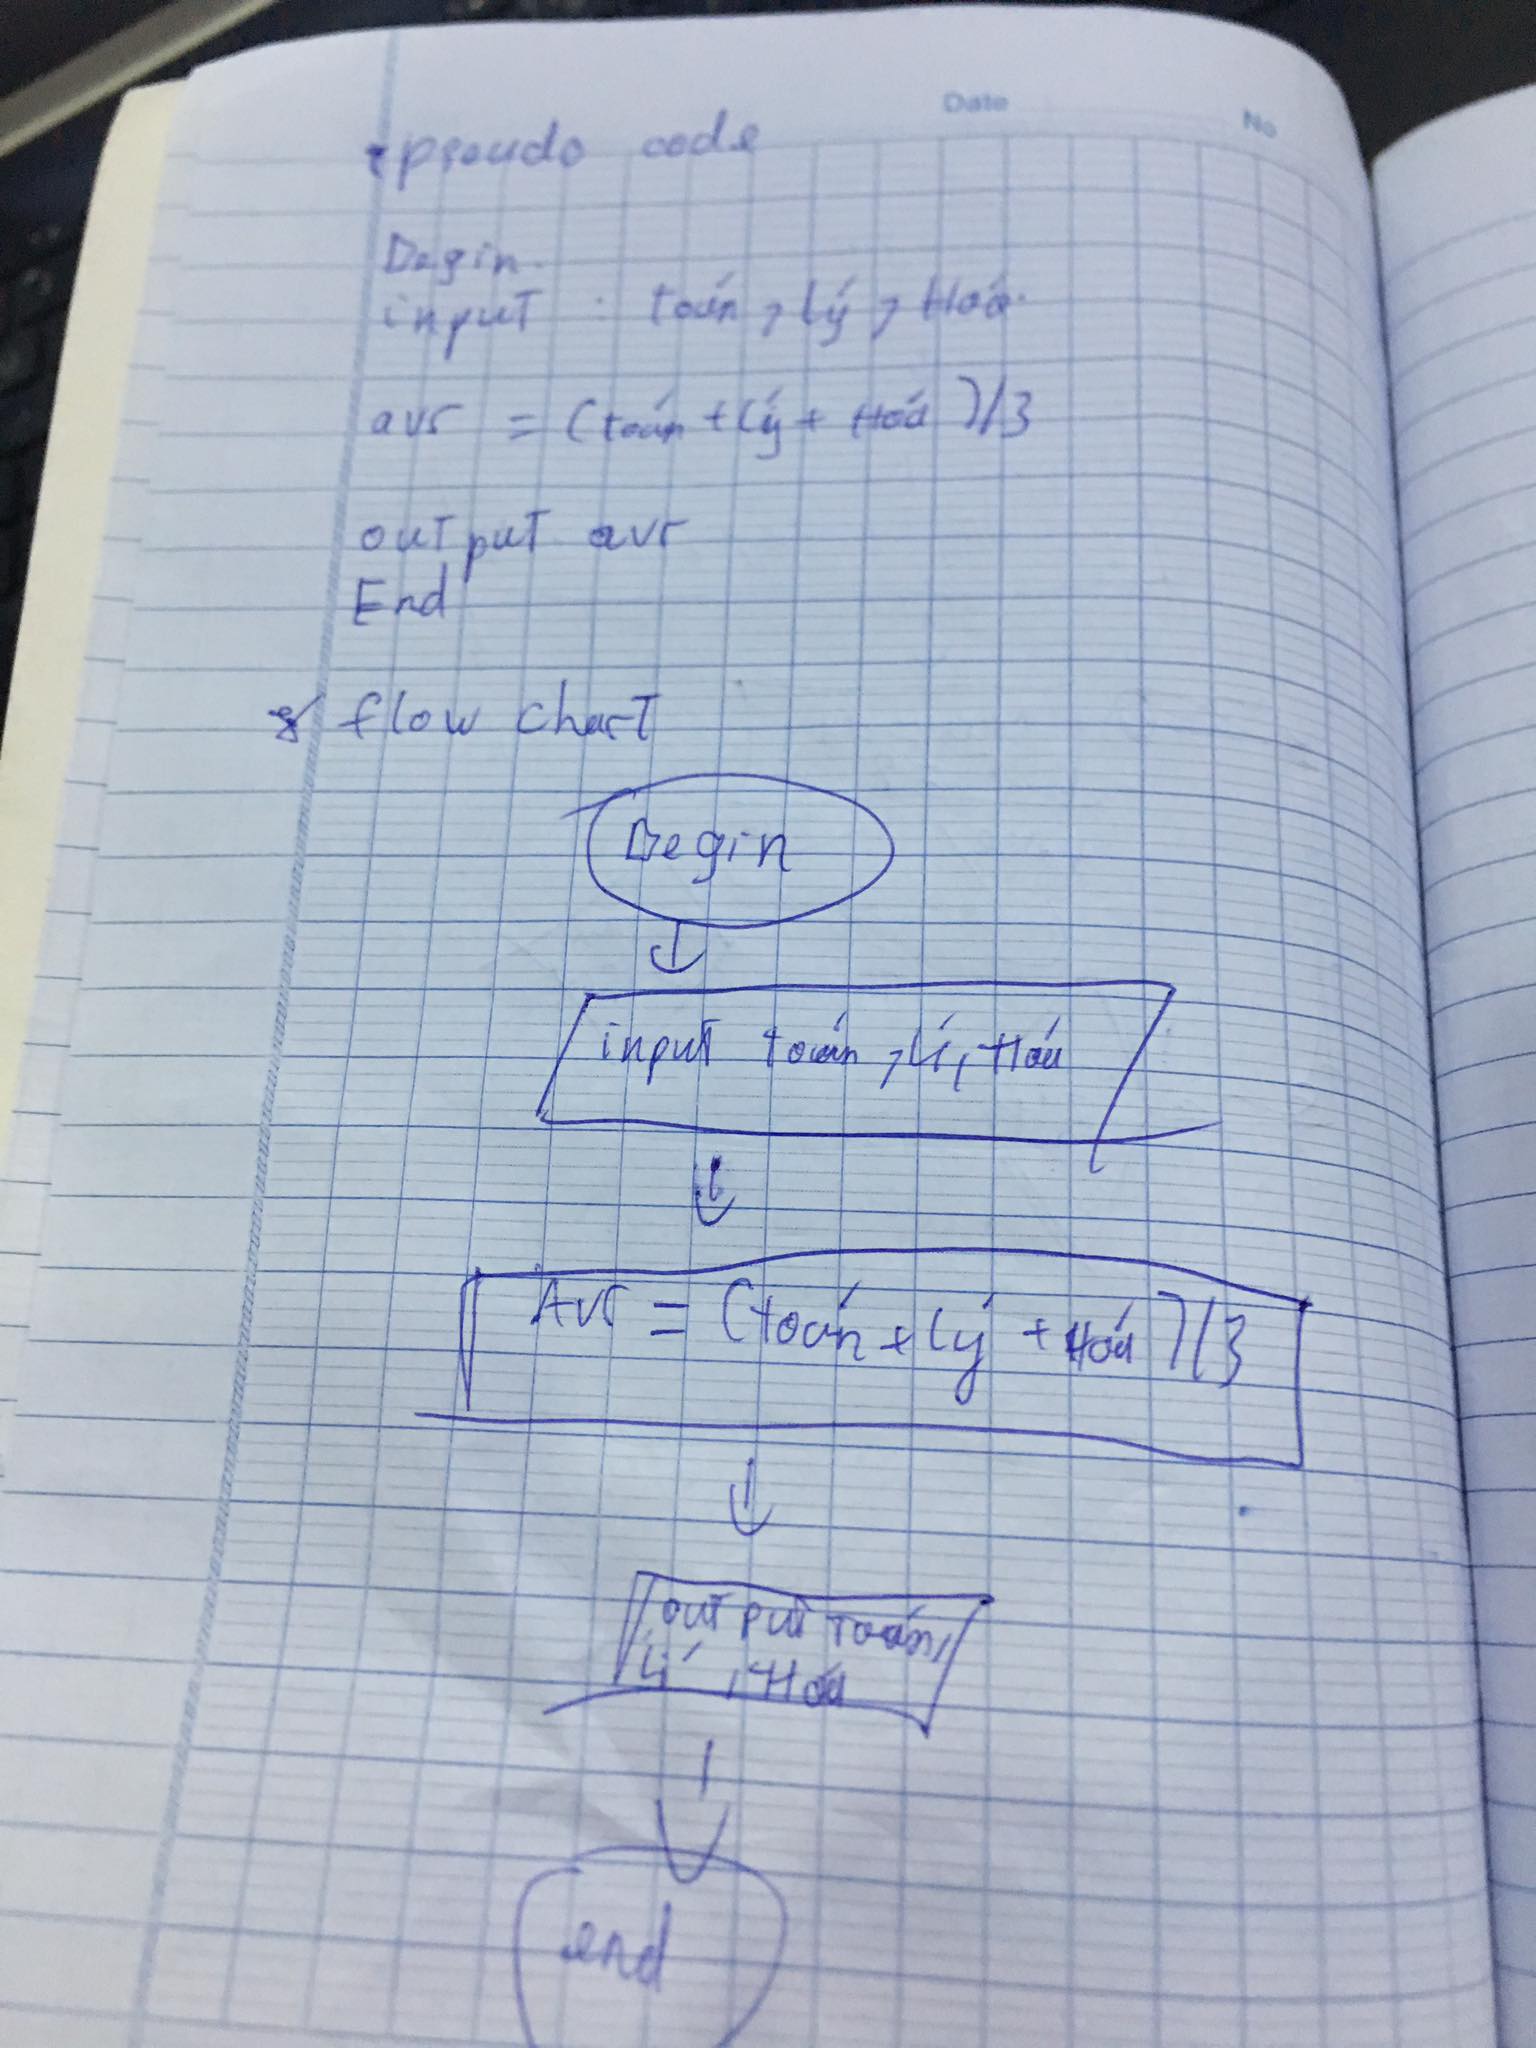 Date
No
pseudo code
Begin
input : toán, Lý, Hoá.
avr = (toán + Lý + Hoá)/3
output avr
End
flow chart
Begin
input toán, Lí, Hoá
Avr = (toán + Lý + Hoá)/3
output toán,
Lí, Hoá
end